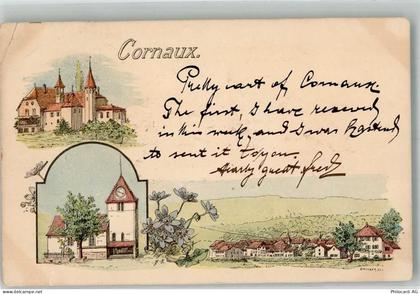 Cornaux.
Pretty cart of Cornaux
The first, I have received
in this week, and I was hastend
to sent it to you
hearty greet fred
Philocard AG